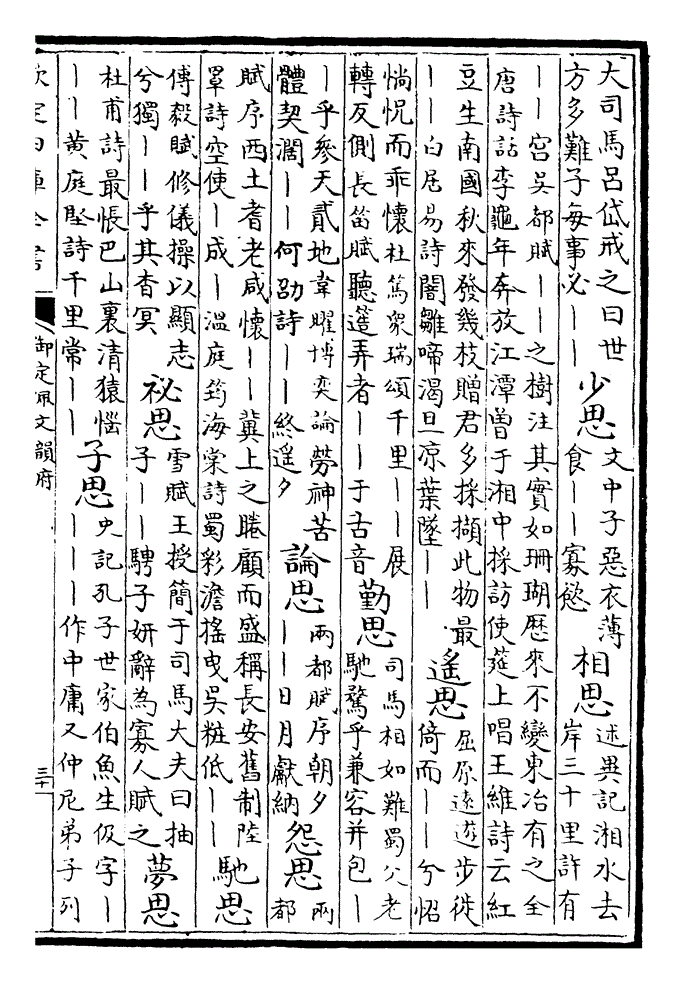 大司馬呂岱戒之曰世
方多難子每事必｜｜
少思
文中子惡衣薄
食｜｜寡慾
相思
述異記湘水去
岸三十里許有
｜｜宮吳都賦｜｜之樹注其實如珊瑚歴來不變東冶有之全
唐詩話李龜年奔放江潭曽于湘中採訪使筵上唱王維詩云紅
豆生南國秋來發幾枝贈君多採擷此物最
｜｜白居易詩闇雛啼渴旦凉葉墜｜｜
遙思
屈原遠遊步徙
倚而｜｜兮怊
惝怳而乖懷杜篤衆瑞頌千里｜｜展
轉反側長笛賦聽簉弄者｜｜于古音
勤思
司馬相如難蜀父老
馳騖乎兼容并包｜
｜乎參天貳地韋曜博奕論勞神苦
體契濶｜｜何劭詩｜｜終遥夕
論思
兩都賦序朝夕
｜｜日月獻納
怨思
兩
都
賦序西土耆老咸懷｜｜冀上之睠顧而盛稱長安舊制陸
罩詩空使｜成｜溫庭筠海棠詩蜀彩澹搖曳吳粧低｜｜
馳思
傅毅賦修儀操以顯志
兮獨｜｜乎其杳冥
祕思
雪賦王授簡于司馬大夫曰抽
子｜｜騁子妍辭為寡人賦之
夢思
杜甫詩最悵巴山裏清猿惱
｜｜黄庭堅詩千里常｜｜
子思
史記孔子世家伯魚生伋字｜
｜｜｜作中庸又仲尼弟子列
欽定四庫全書
御定佩文韻府